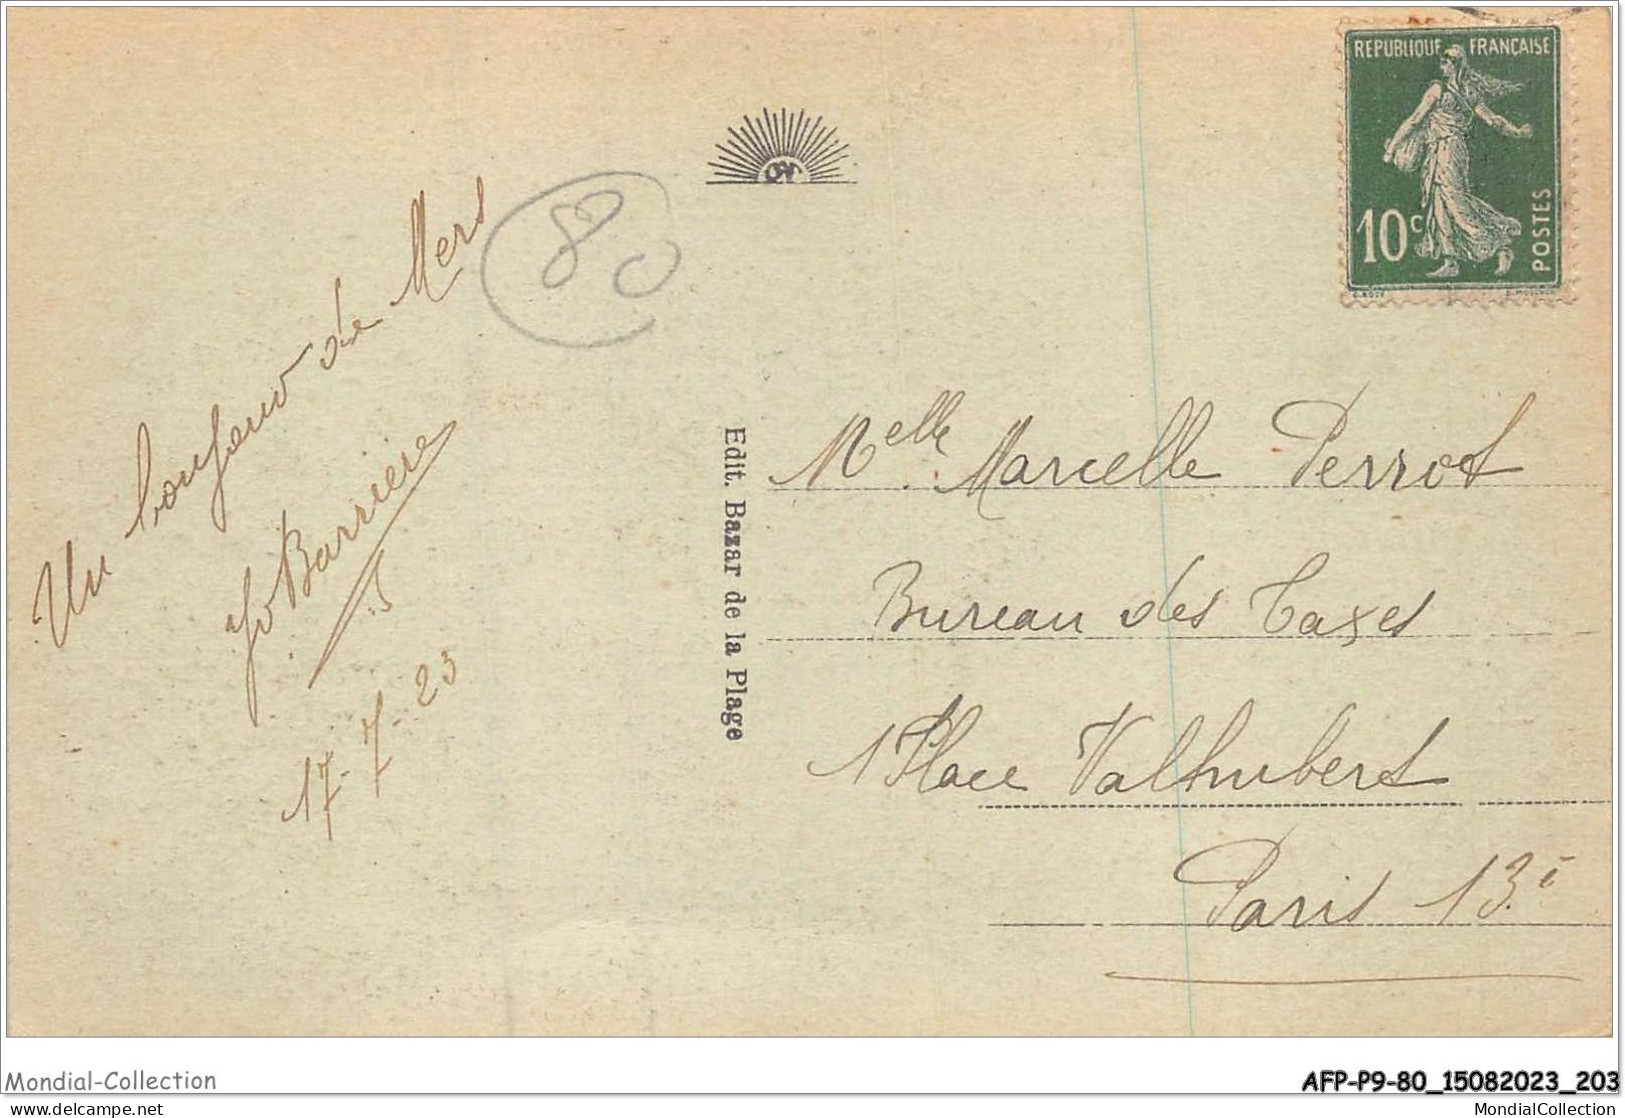 REPUBLIQUE FRANÇAISE
10c
POSTES
Un bonjour de Mers
Yv Barriere
17-7-23
80
Edit. Bazar de la Plage
Melle Marcelle Perrot
Bureau des Taxes
1 Place Valhubert
Paris 13.e
Mondial-Collection
AFP-P9-80_15082023_203
delcampe.net
MondialCollection